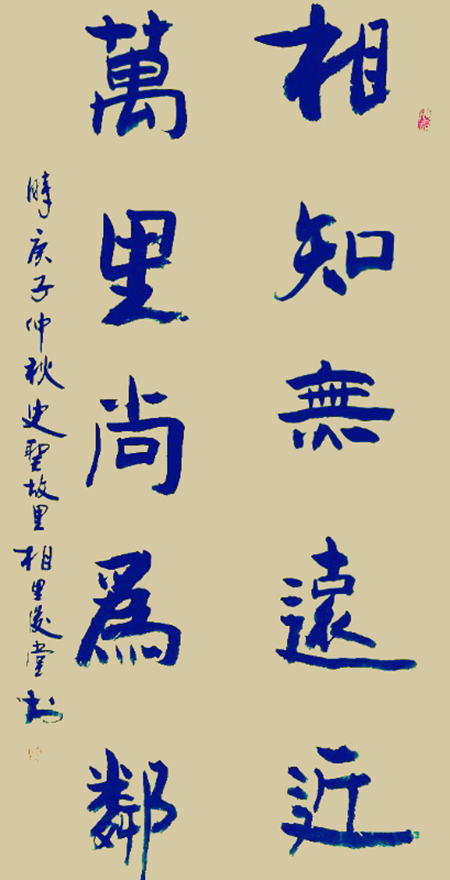 相知無遠近
萬里尚爲鄰
時庚子仲秋史聖故里相里堂